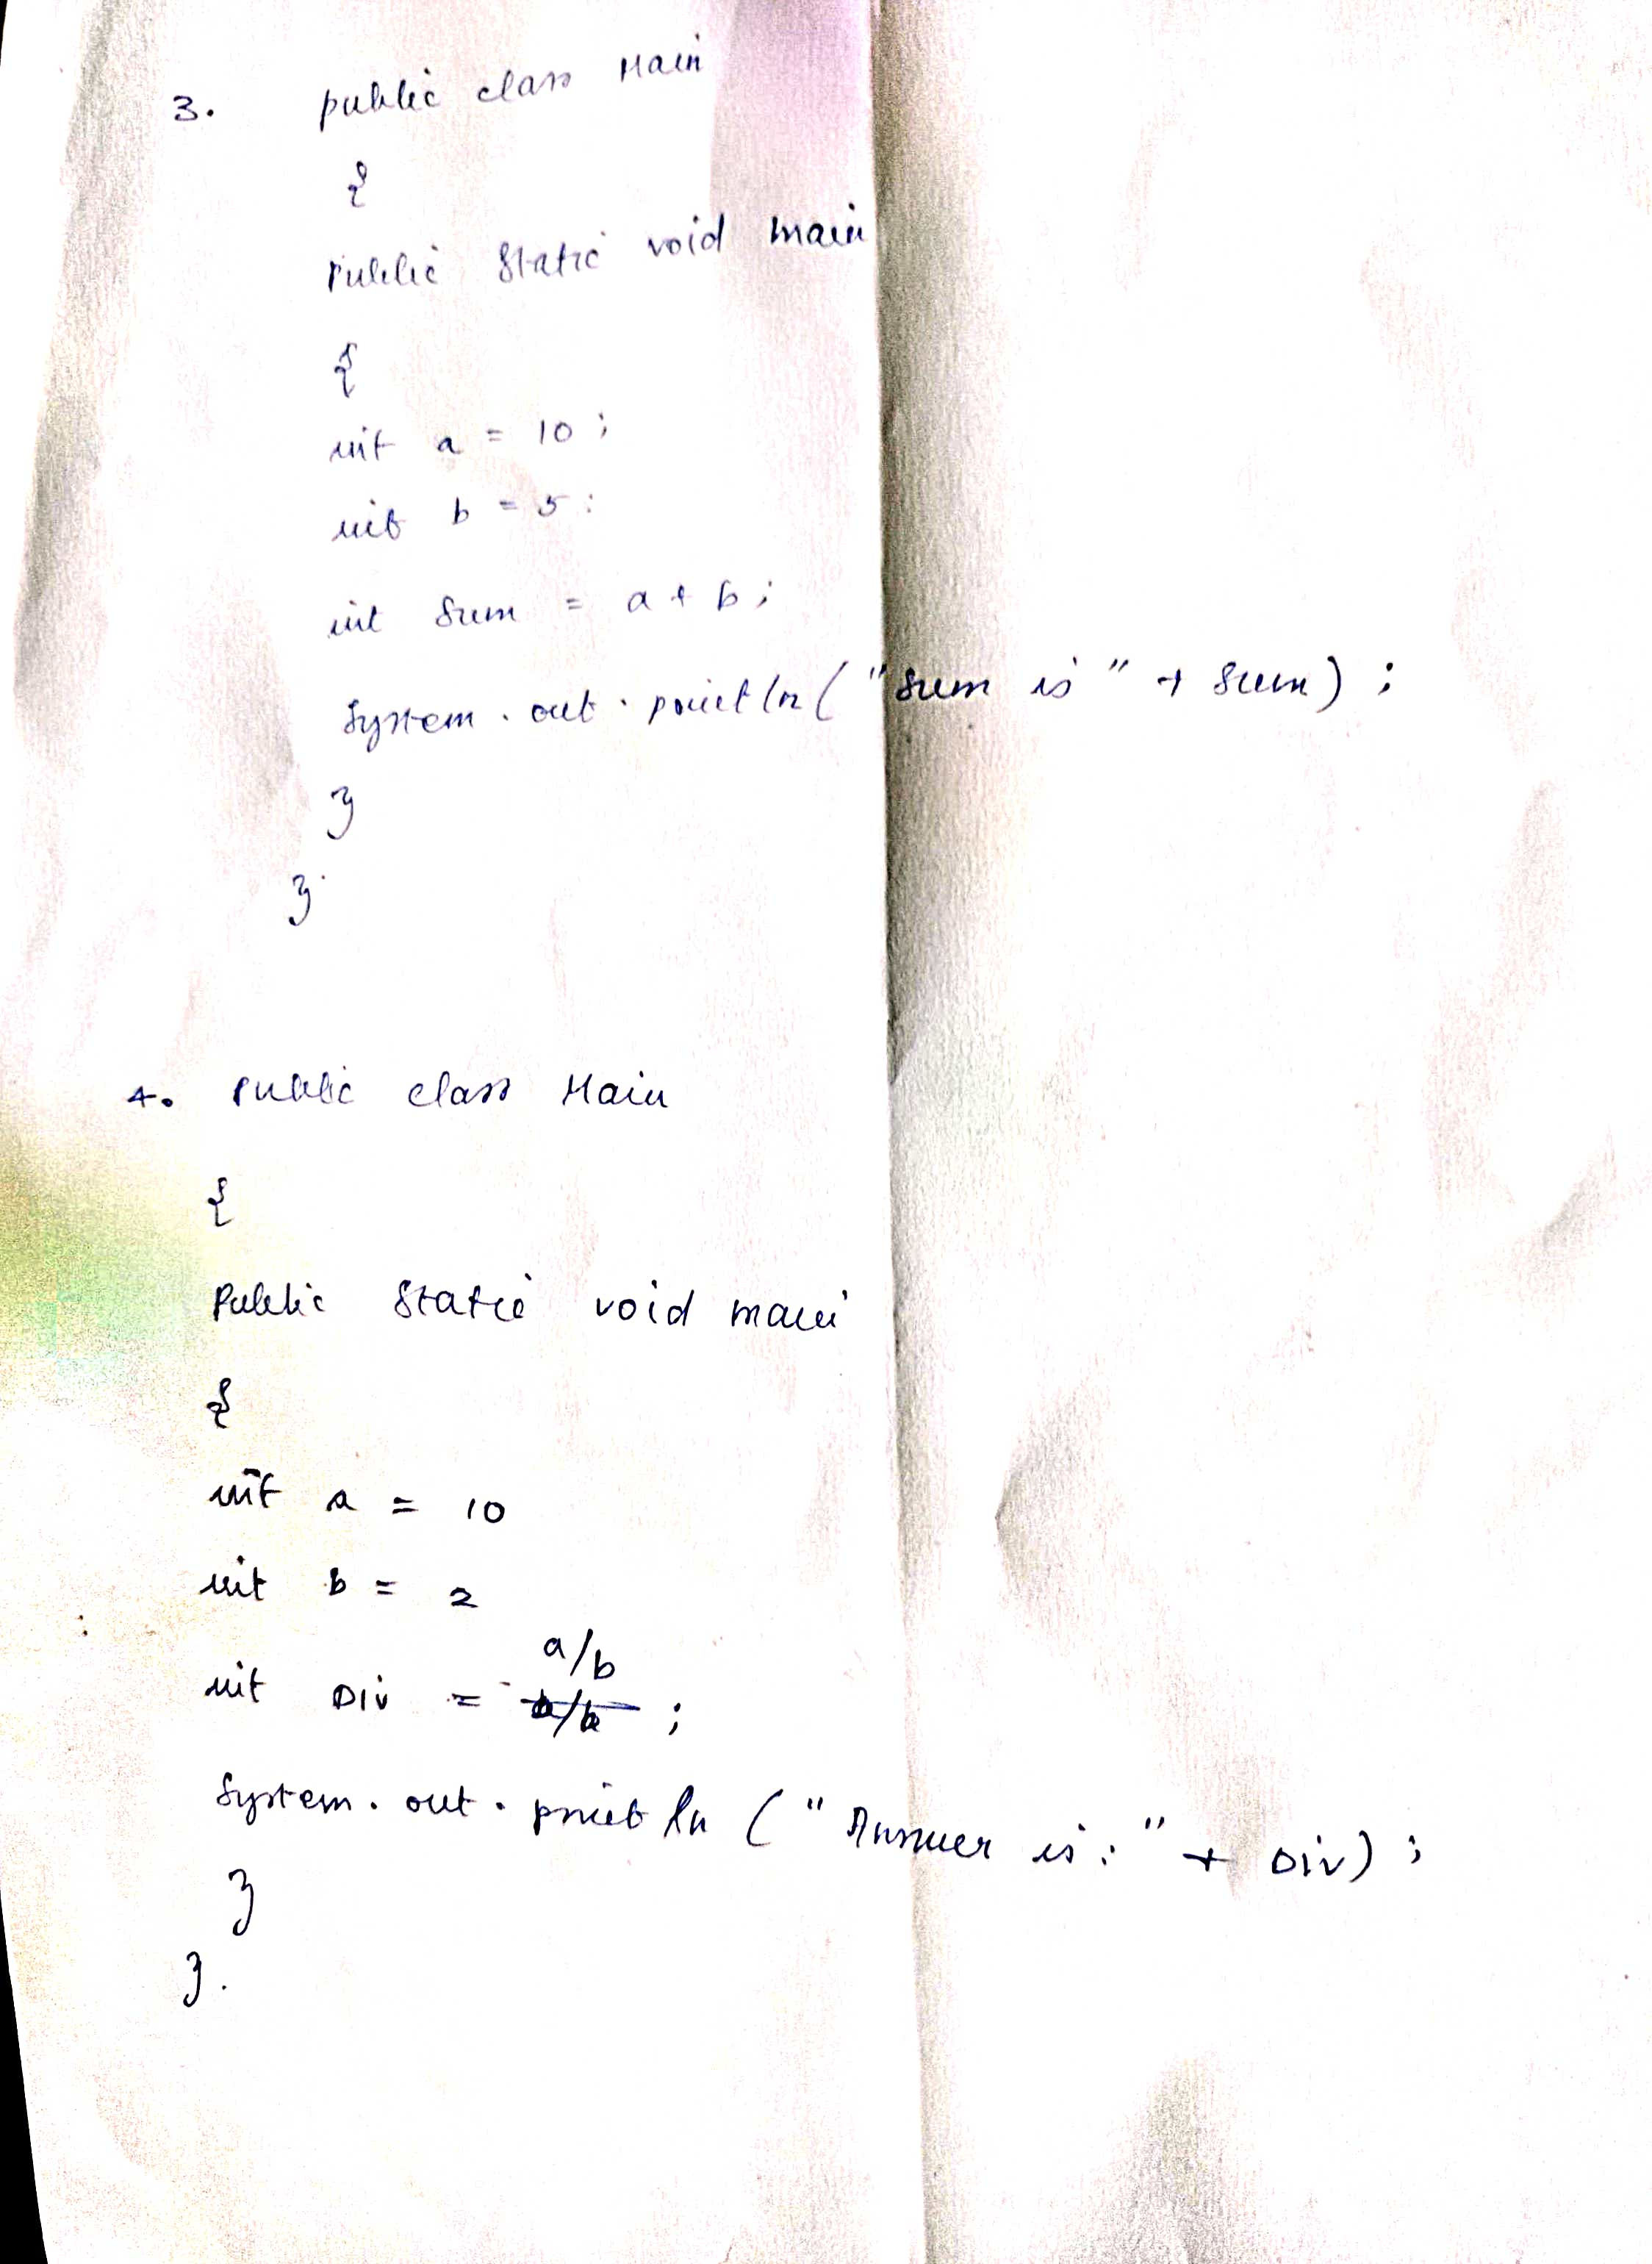 3. public class Main
{
Public Static void main
{
int a = 10 ;
int b = 5 :
int Sum = a + b ;
System . out . println ( "Sum is " + Sum ) ;
}
}
4. Public class Main
{
Public Static void main
{
int a = 10
int b = 2
a/b
int Div = b/a ;
System . out . println ( " Answer is : " + Div ) ;
}
} .